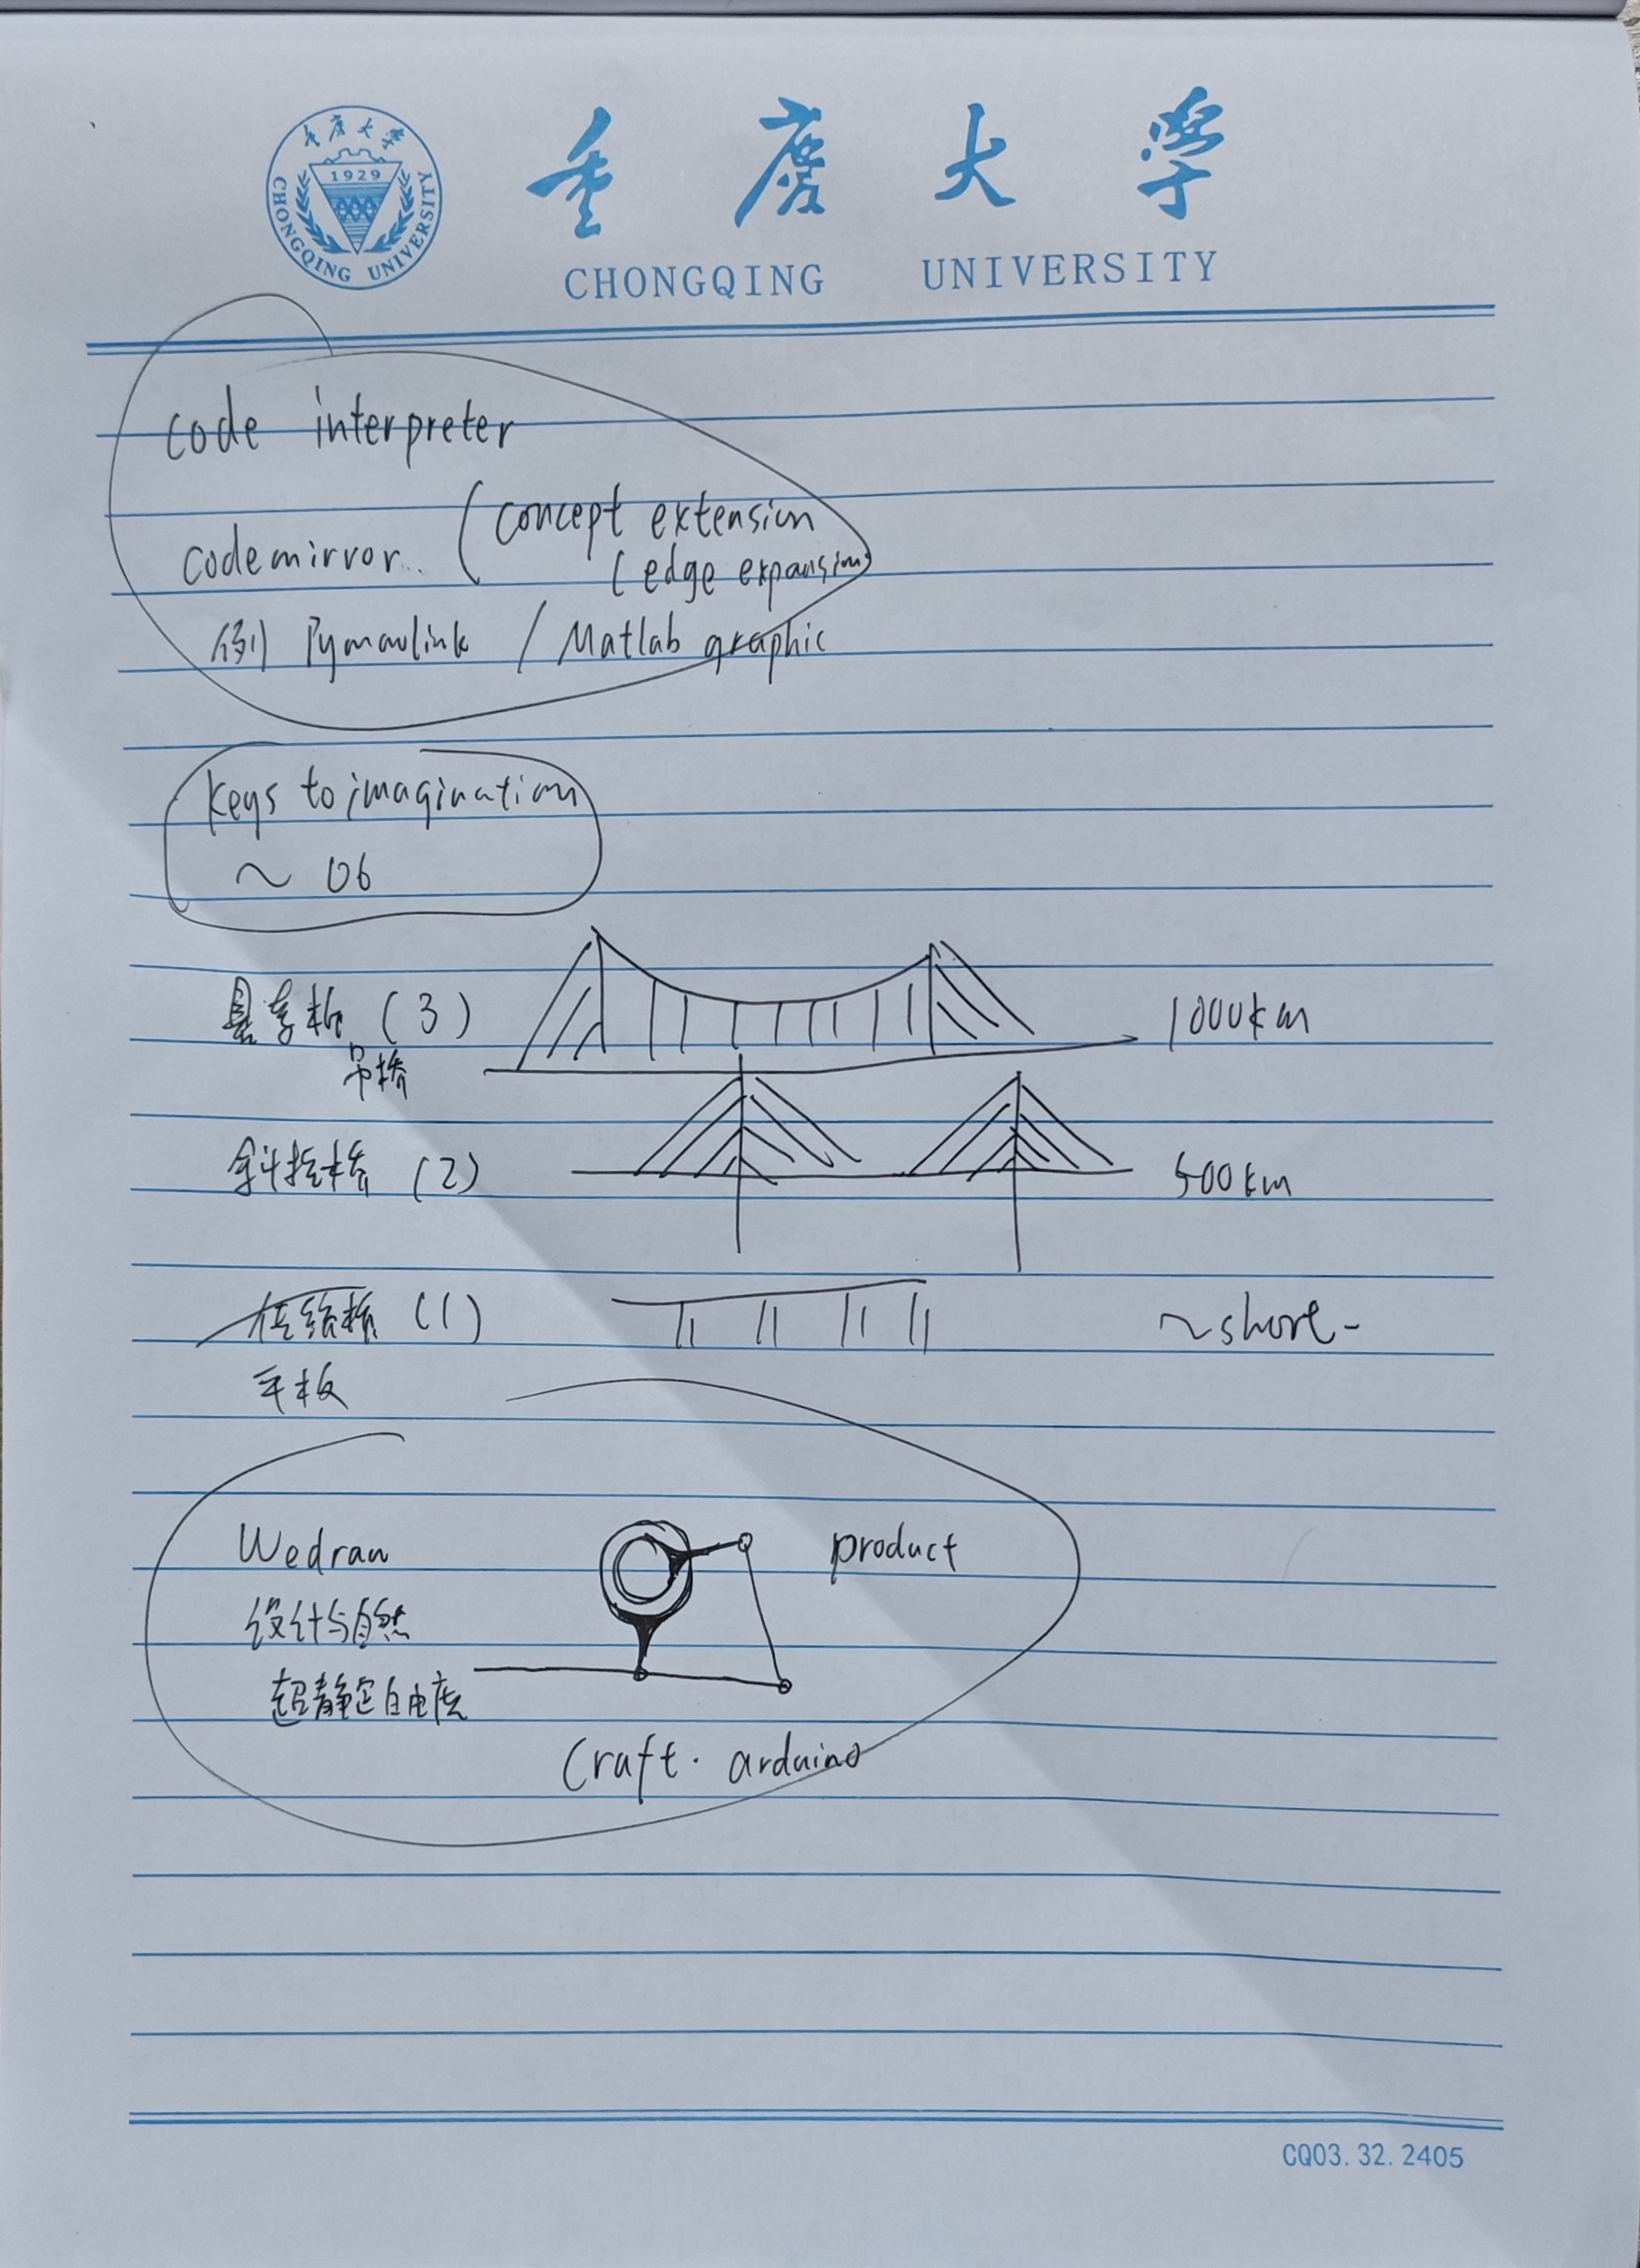 重庆大学
1929
CHONGQING UNIVERSITY
重庆大学
CHONGQING UNIVERSITY
code interpreter
codemirror.. (concept extension
(edge expansion)
例) Pymavlink / Matlab graphic
keys to imagination
~ 06
悬索桥 (3) 1000km
吊桥
斜拉桥 (2) 500km
传统桥 (1) ~short-
平板
Wedraw product
设计与自然
超静定自由度
Craft. arduino
CQ03.32.2405